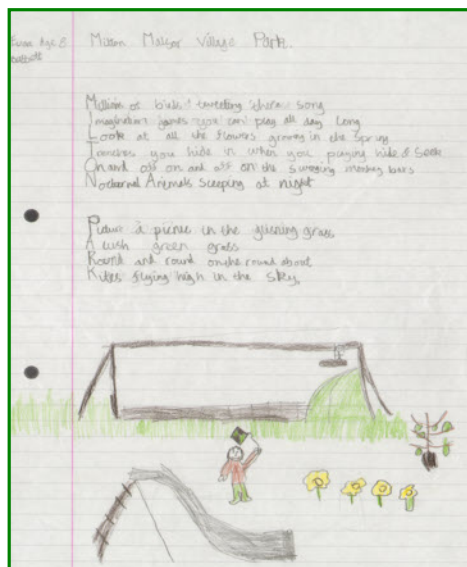 Evan Age 8
Milton Malsor Village Park.
Millions of birds tweeting there song
Imagination games you can play all day long
Look at all the flowers growing in the spring
Trenches you hide in when you playing hide & Seek
On and off on and off on the swinging monkey bars
Nocturnal Animals sceeping at night
Picture a picnic in the glisning grass
A lush green grass
Round and round on the round about
Kites flying high in the sky.